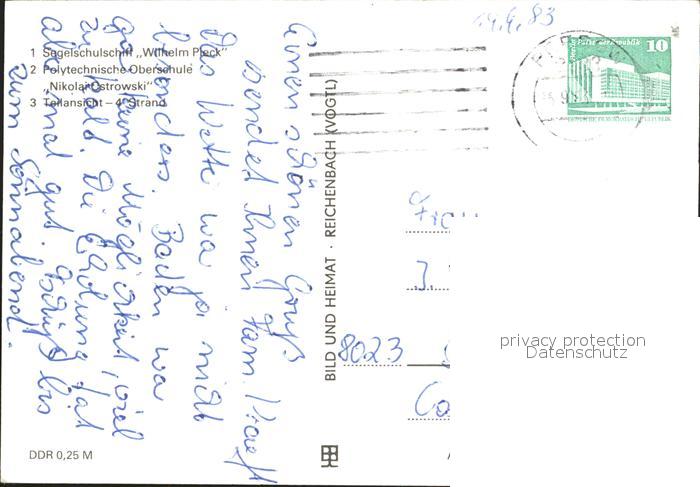 14.4.83
1 Segelschulschiff „Wilhelm Pieck"
2 Polytechnische Oberschule
„Nikolai Ostrowski"
3 Teilansicht – 4. Strand
Einen schönen Gruß
sendet Ihnen Fam.
Das Wetter war ja nicht
besonders. Baden war
gar keine Möglichkeit, viel
zu kalt. Die Erholung hat
aber mal gut. Tschüß bis
zum Sonnabend!
BILD UND HEIMAT · REICHENBACH (VOGTL)
10
8023
DDR 0,25 M
privacy protection
Datenschutz